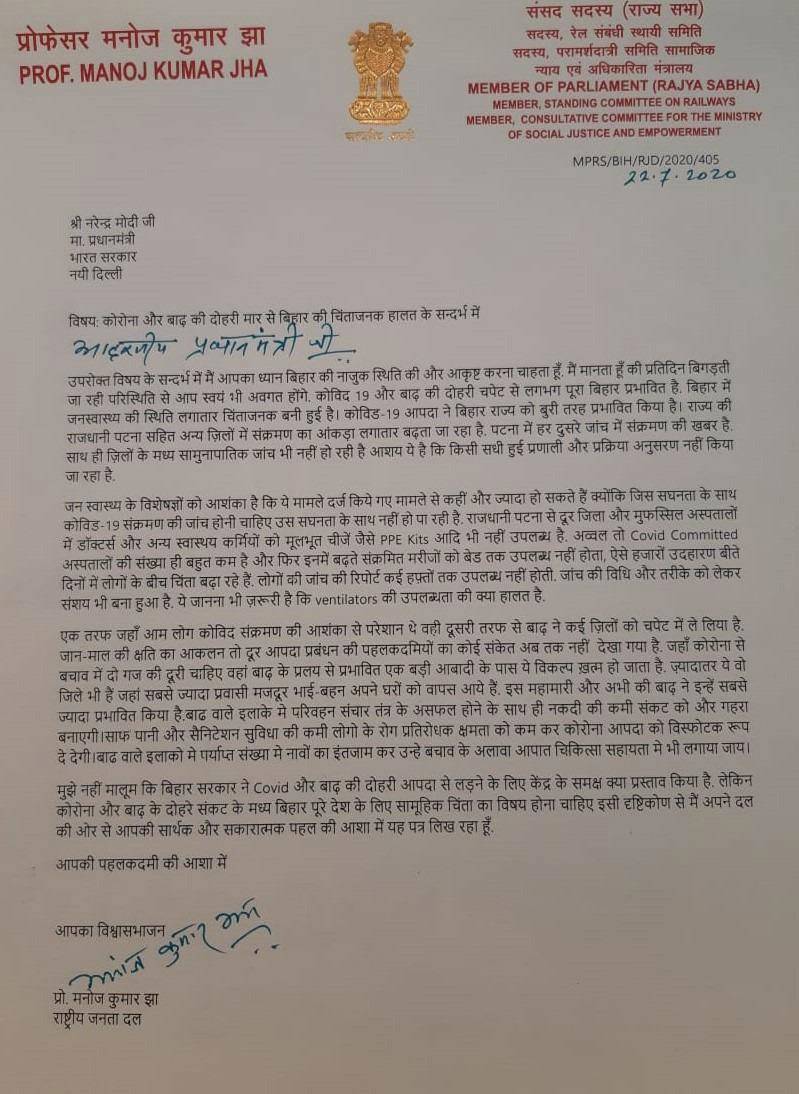 प्रोफेसर मनोज कुमार झा
PROF. MANOJ KUMAR JHA
सत्यमेव जयते
संसद सदस्य (राज्य सभा)
सदस्य, रेल संबंधी स्थायी समिति
सदस्य, परामर्शदात्री समिति सामाजिक
न्याय एवं अधिकारिता मंत्रालय
MEMBER OF PARLIAMENT (RAJYA SABHA)
MEMBER, STANDING COMMITTEE ON RAILWAYS
MEMBER, CONSULTATIVE COMMITTEE FOR THE MINISTRY
OF SOCIAL JUSTICE AND EMPOWERMENT
MPRS/BIH/RJD/2020/405
22.7.2020
श्री नरेन्द्र मोदी जी
मा. प्रधानमंत्री
भारत सरकार
नयी दिल्ली
विषय: कोरोना और बाढ़ की दोहरी मार से बिहार की चिंताजनक हालत के सन्दर्भ में
आदरणीय प्रधानमंत्री जी..
उपरोक्त विषय के सन्दर्भ में मैं आपका ध्यान बिहार की नाजुक स्थिति की और आकृष्ट करना चाहता हूँ. मैं मानता हूँ की प्रतिदिन बिगड़ती
जा रही परिस्थिति से आप स्वयं भी अवगत होंगे. कोविद 19 और बाढ़ की दोहरी चपेट से लगभग पूरा बिहार प्रभावित है. बिहार में
जनस्वास्थ्य की स्थिति लगातार चिंताजनक बनी हुई है। कोविड-19 आपदा ने बिहार राज्य को बुरी तरह प्रभावित किया है। राज्य की
राजधानी पटना सहित अन्य ज़िलों में संक्रमण का आंकड़ा लगातार बढ़ता जा रहा है. पटना में हर दुसरे जांच में संक्रमण की खबर है.
साथ ही ज़िलों के मध्य सामुनापातिक जांच भी नहीं हो रही है आशय ये है कि किसी सधी हुई प्रणाली और प्रक्रिया अनुसरण नहीं किया
जा रहा है.
जन स्वास्थ्य के विशेषज्ञों को आशंका है कि ये मामले दर्ज किये गए मामले से कहीं और ज्यादा हो सकते हैं क्योंकि जिस सघनता के साथ
कोविड-19 संक्रमण की जांच होनी चाहिए उस सघनता के साथ नहीं हो पा रही है. राजधानी पटना से दूर जिला और मुफस्सिल अस्पतालों
में डॉक्टर्स और अन्य स्वास्थय कर्मियों को मूलभूत चीजें जैसे PPE Kits आदि भी नहीं उपलब्ध है. अव्वल तो Covid Committed
अस्पतालों की संख्या ही बहुत कम है और फिर इनमें बढ़ते संक्रमित मरीजों को बेड तक उपलब्ध नहीं होता, ऐसे हजारों उदहारण बीते
दिनों में लोगों के बीच चिंता बढ़ा रहे हैं. लोगों की जांच की रिपोर्ट कई हफ़्तों तक उपलब्ध नहीं होती. जांच की विधि और तरीके को लेकर
संशय भी बना हुआ है. ये जानना भी ज़रूरी है कि ventilators की उपलब्धता की क्या हालत है.
एक तरफ जहाँ आम लोग कोविद संक्रमण की आशंका से परेशान थे वही दूसरी तरफ से बाढ़ ने कई ज़िलों को चपेट में ले लिया है.
जान-माल की क्षति का आकलन तो दूर आपदा प्रबंधन की पहलकदमियों का कोई संकेत अब तक नहीं देखा गया है. जहाँ कोरोना से
बचाव में दो गज की दूरी चाहिए वहां बाढ़ के प्रलय से प्रभावित एक बड़ी आबादी के पास ये विकल्प ख़त्म हो जाता है. ज़्यादातर ये वो
जिले भी हैं जहां सबसे ज्यादा प्रवासी मजदूर भाई-बहन अपने घरों को वापस आये हैं. इस महामारी और अभी की बाढ़ ने इन्हें सबसे
ज्यादा प्रभावित किया है.बाढ वाले इलाके मे परिवहन संचार तंत्र के असफल होने के साथ ही नकदी की कमी संकट को और गहरा
बनाएगी।साफ पानी और सैनिटेशन सुविधा की कमी लोगो के रोग प्रतिरोधक क्षमता को कम कर कोरोना आपदा को विस्फोटक रूप
दे देगी।बाढ वाले इलाको मे पर्याप्त संख्या मे नावों का इंतजाम कर उन्हे बचाव के अलावा आपात चिकित्सा सहायता मे भी लगाया जाय।
मुझे नहीं मालूम कि बिहार सरकार ने Covid और बाढ़ की दोहरी आपदा से लड़ने के लिए केंद्र के समक्ष क्या प्रस्ताव किया है. लेकिन
कोरोना और बाढ़ के दोहरे संकट के मध्य बिहार पूरे देश के लिए सामूहिक चिंता का विषय होना चाहिए इसी दृष्टिकोण से मैं अपने दल
की ओर से आपकी सार्थक और सकारात्मक पहल की आशा में यह पत्र लिख रहा हूँ.
आपकी पहलकदमी की आशा में
आपका विश्वासभाजन
मनोज कुमार झा
प्रो. मनोज कुमार झा
राष्ट्रीय जनता दल